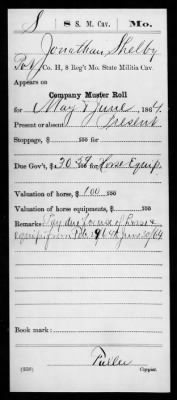 S 8 S. M. Cav. Mo.
Jonathan Shelby
Pvt, Co. H, 8 Reg't Mo. State Militia Cav.
Appears on
Company Muster Roll
for May & June, 1864.
Present or absent Present
Stoppage, $ 100 for
Due Gov't, $ 30 59/100 for Horse Equip.
Valuation of horse, $ 100 100
Valuation of horse equipments, $ 100
Remarks: Pay due for use of horse &
equip from Feb. 9/64 to June 30/64
Book mark:
Fuller
(358) Copyist.